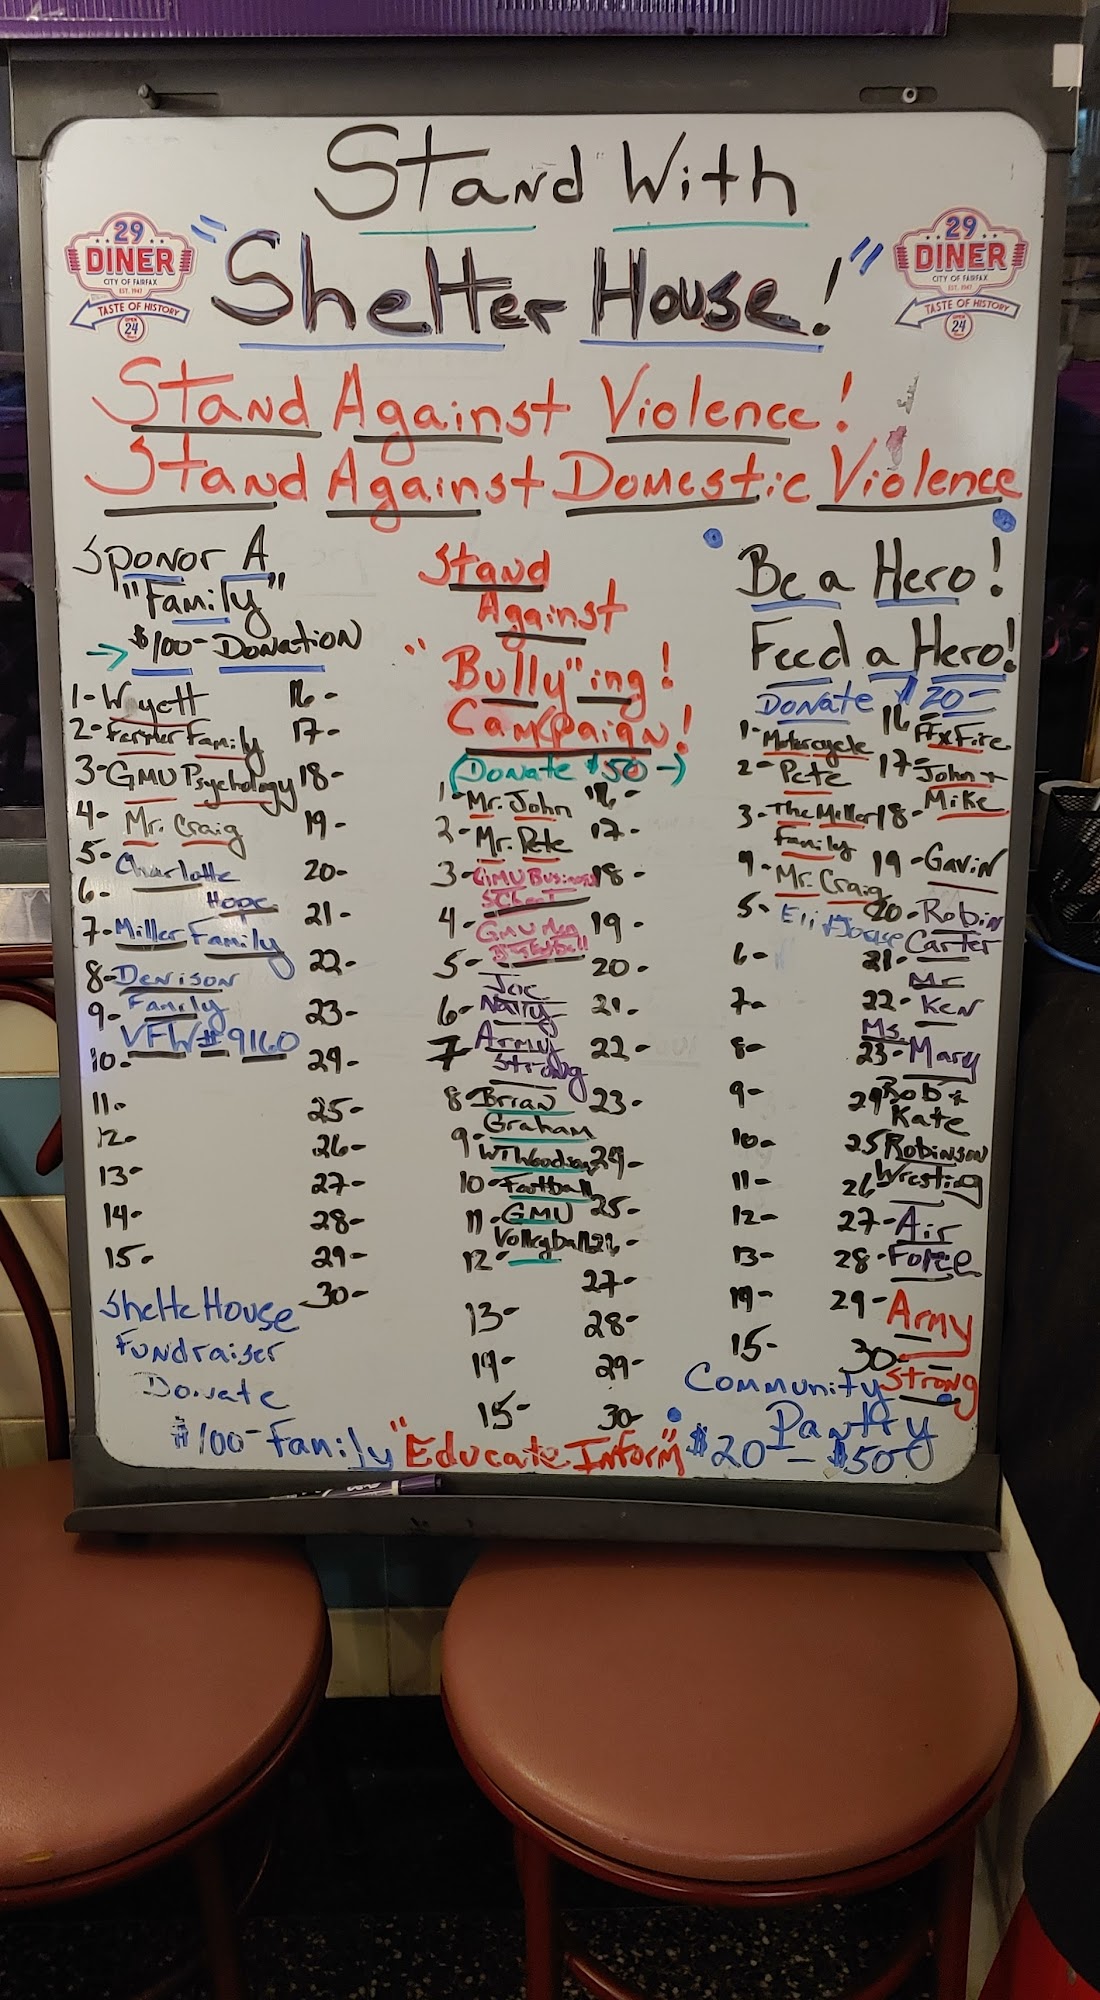 Stand With
"Shelter House!"
29
DINER
CITY OF FAIRFAX
EST. 1947
TASTE OF HISTORY
OPEN
24
29
DINER
CITY OF FAIRFAX
EST. 1947
TASTE OF HISTORY
OPEN
24
Stand Against Violence!
Stand Against Domestic Violence
Sponor A
"Family"
$100- Donation
1- Wyett
2- Ferrier Family
3- GMU Psychology
4- Mr. Craig
5- Charlotte
6- Hope
7- Miller Family
8- Denison
9- Family
VFW # 9160
10-
11-
12-
13-
14-
15-
16-
17-
18-
19-
20-
21-
22-
23-
24-
25-
26-
27-
28-
29-
30-
Shelte House
Fundraiser
Donate
$100- Family
Stand
Against
"Bully"ing!
Campaign!
(Donate $50-)
1- Mr. John
2- Mr. Pete
3- GMU Business
School
4- GMU Men
Basketball
5- Joe
6- Natty
7 Army
Strong
8- Brian
Graham
9- WTWoodson
10- Football
11- GMU
Volleyball
12-
13-
14-
15-
16-
17-
18-
19-
20-
21-
22-
23-
24-
25-
26-
27-
28-
29-
30-
"Educate Inform"
Be a Hero!
Feed a Hero!
Donate $20-
1- Motorcycle
2- Pete
3- The Miller
Family
4- Mr. Craig
5- Eli House
6-
7-
8-
9-
10-
11-
12-
13-
14-
15-
16- Ffx Fire
17- John +
18- Mike
19- Gavin
20- Robin
Carter
21- Mr
22- Ken
Ms.
23- Mary
24 Rob +
Kate
25 Robinson
26 Wresting
27- Air
28- Force
29- Army
30- Strong
Community
Pantry
$20- - $50